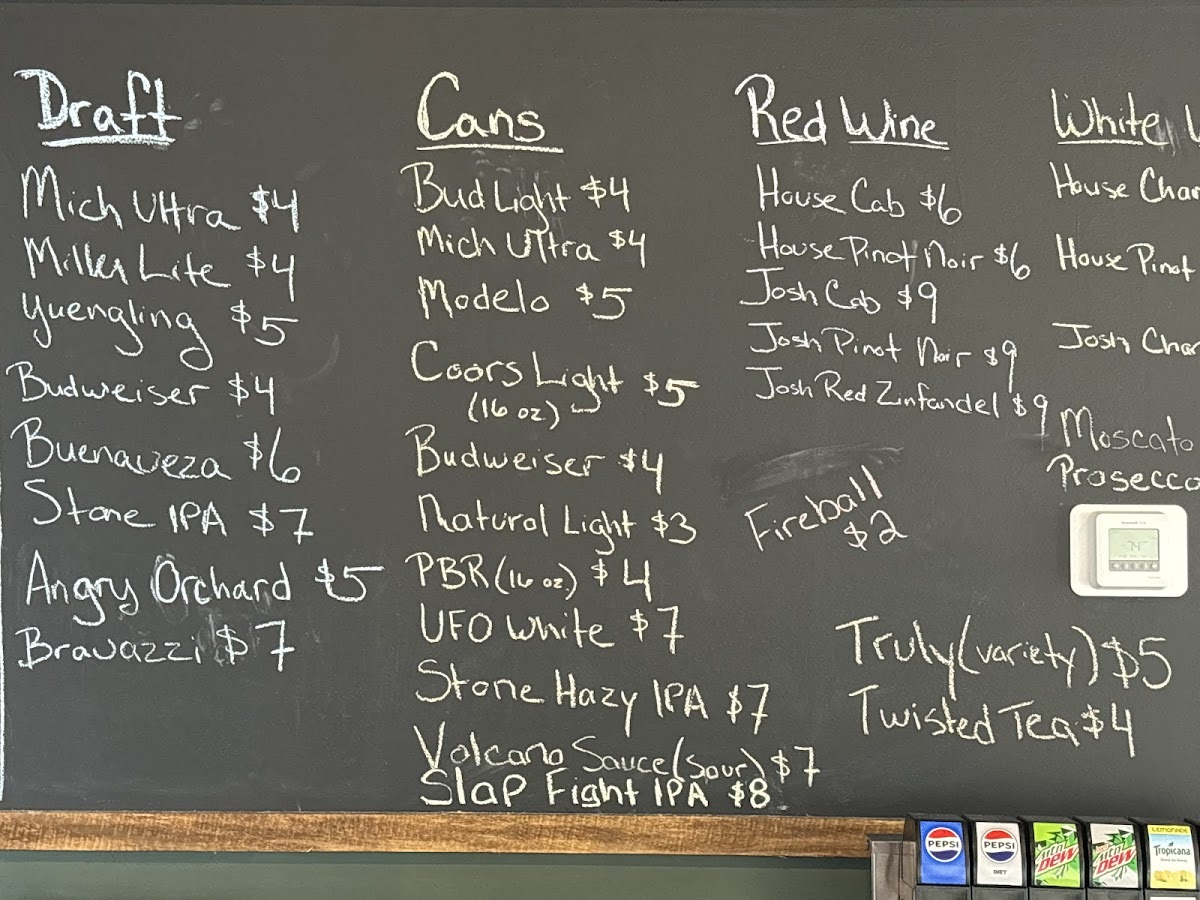 Draft
Mich Ultra $4
Miller Lite $4
Yuengling $5
Budweiser $4
Buenaveza $6
Stone IPA $7
Angry Orchard $5
Bravazzi $7
Cans
Bud Light $4
Mich Ultra $4
Modelo $5
Coors Light $5
(16 oz)
Budweiser $4
Natural Light $3
PBR (16 oz) $4
UFO White $7
Stone Hazy IPA $7
Volcano Sauce (sour) $7
Slap Fight IPA $8
Red Wine
House Cab $6
House Pinot Noir $6
Josh Cab $9
Josh Pinot Noir $9
Josh Red Zinfandel $9
Fireball
$2
White
House Char
House Pinot
Josh Char
Moscato
Prosecco
Truly (variety) $5
Twisted Tea $4
PEPSI
PEPSI
DIET
mtn DEW
mtn DEW
LEMONADE
Tropicana